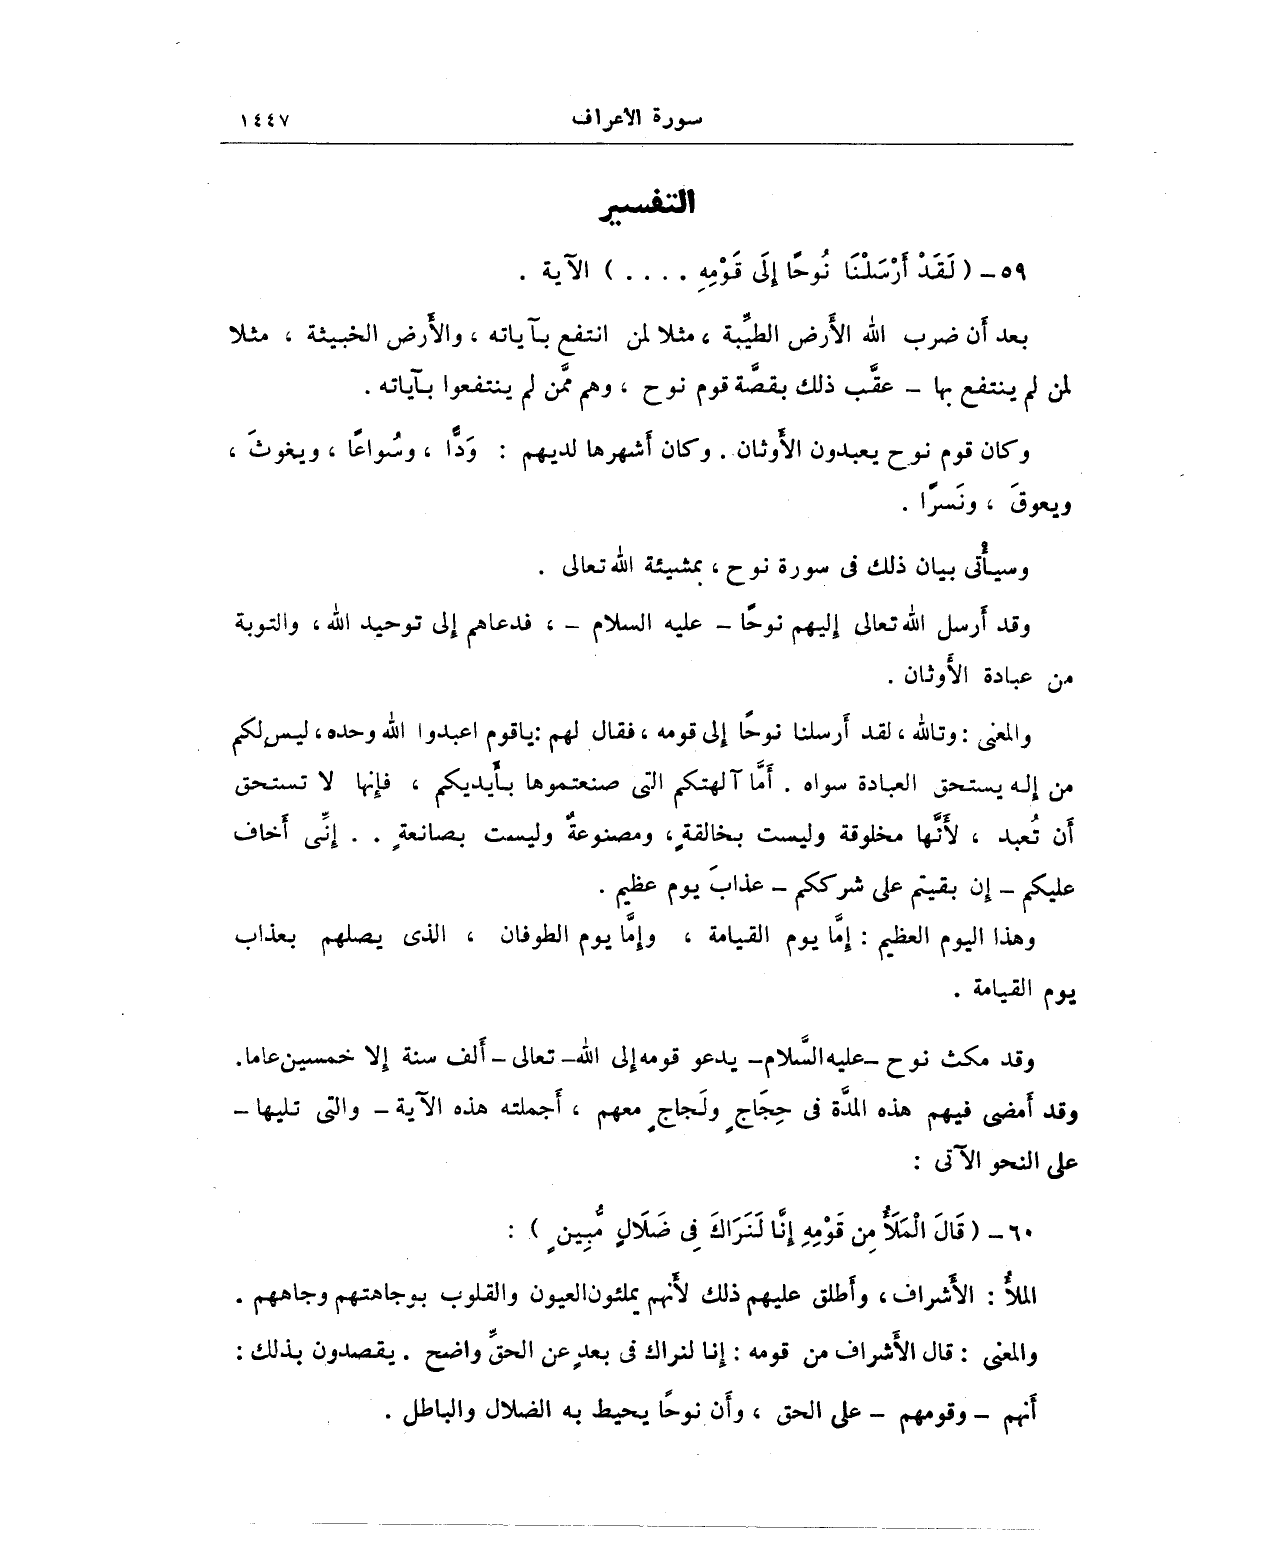 سورة الأعراف ١٤٤٧
التفسير
٥٩ - ( لَقَدْ أَرْسَلْنَا نُوحًا إِلَى قَوْمِهِ . . . . ) الآية .
بعد أن ضرب الله الأرض الطيِّبة ، مثلا لمن انتفع بآياته ، والأرض الخبيثة ، مثلا
لمن لم ينتفع بها - عقَّب ذلك بقصَّة قوم نوح ، وهم ممَّن لم ينتفعوا بآياته .
وكان قوم نوح يعبدون الأوثان . وكان أشهرها لديهم : وَدًّا ، وسُواعًا ، ويغوثَ ،
ويعوقَ ، ونَسرًا .
وسيأتى بيان ذلك فى سورة نوح ، بمشيئة الله تعالى .
وقد أرسل الله تعالى إليهم نوحًا - عليه السلام - ، فدعاهم إلى توحيد الله ، والتوبة
من عبادة الأوثان .
والمعنى : وتالله ، لقد أرسلنا نوحًا إلى قومه ، فقال لهم : ياقوم اعبدوا الله وحده ، ليس لكم
من إله يستحق العبادة سواه . أمَّا آلهتكم التى صنعتموها بأيديكم ، فإنها لا تستحق
أن تُعبد ، لأنَّها مخلوقة وليست بخالقةٍ ، ومصنوعةٌ وليست بصانعةٍ . . إنِّى أخاف
عليكم - إن بقيتم على شرككم - عذابَ يوم عظيم .
وهذا اليوم العظيم : إمَّا يوم القيامة ، وإمَّا يوم الطوفان ، الذى يصلهم بعذاب
يوم القيامة .
وقد مكث نوح - عليه السَّلام - يدعو قومه إلى الله - تعالى - ألف سنة إلا خمسين عاما .
وقد أمضى فيهم هذه المدَّة فى حِجَاجٍ ولَجاجٍ معهم ، أجملته هذه الآية - والتى تليها -
على النحو الآتى :
٦٠ - ( قَالَ الْمَلَأُ مِن قَوْمِهِ إِنَّا لَنَرَاكَ فِى ضَلَالٍ مُّبِينٍ ) :
الملأُ : الأشراف ، وأطلق عليهم ذلك لأنهم يملئون العيون والقلوب بوجاهتهم وجاههم .
والمعنى : قال الأشراف من قومه : إنا لنراك فى بعدٍ عن الحقِّ واضح . يقصدون بذلك :
أنهم - وقومهم - على الحق ، وأن نوحًا يحيط به الضلال والباطل .